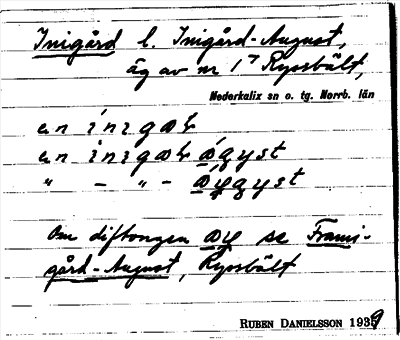 Inigård l. Inigård-August,
äg av nr 1⁷ Ryssbält,
Nederkalix sn o. tg. Norrb. län
en ini̇gaƖ
en inigaƖ águst
" – " –
Om diftongen se Frami-
gård-August, Ryssbält
RUBEN DANIELSSON 1939